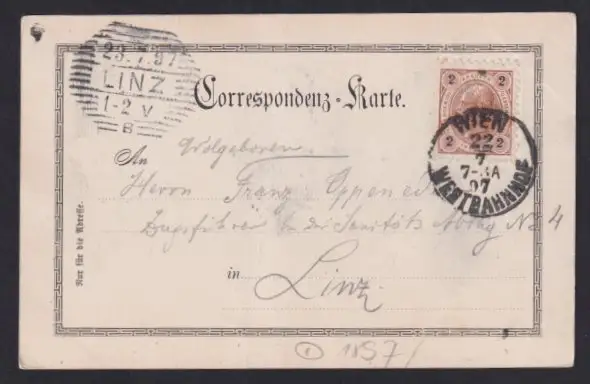 23.7.97
LINZ
1-2 V
B
Correspondenz-Karte.
2 2
2 2
WIEN
22
7
7-8A
97
WESTBAHNHOF
An Wolgeboren
Herrn Franz
Zugsführer in der Sanitäts Abtlg No 4
in Linz.
Nur für die Adresse.
1 1897